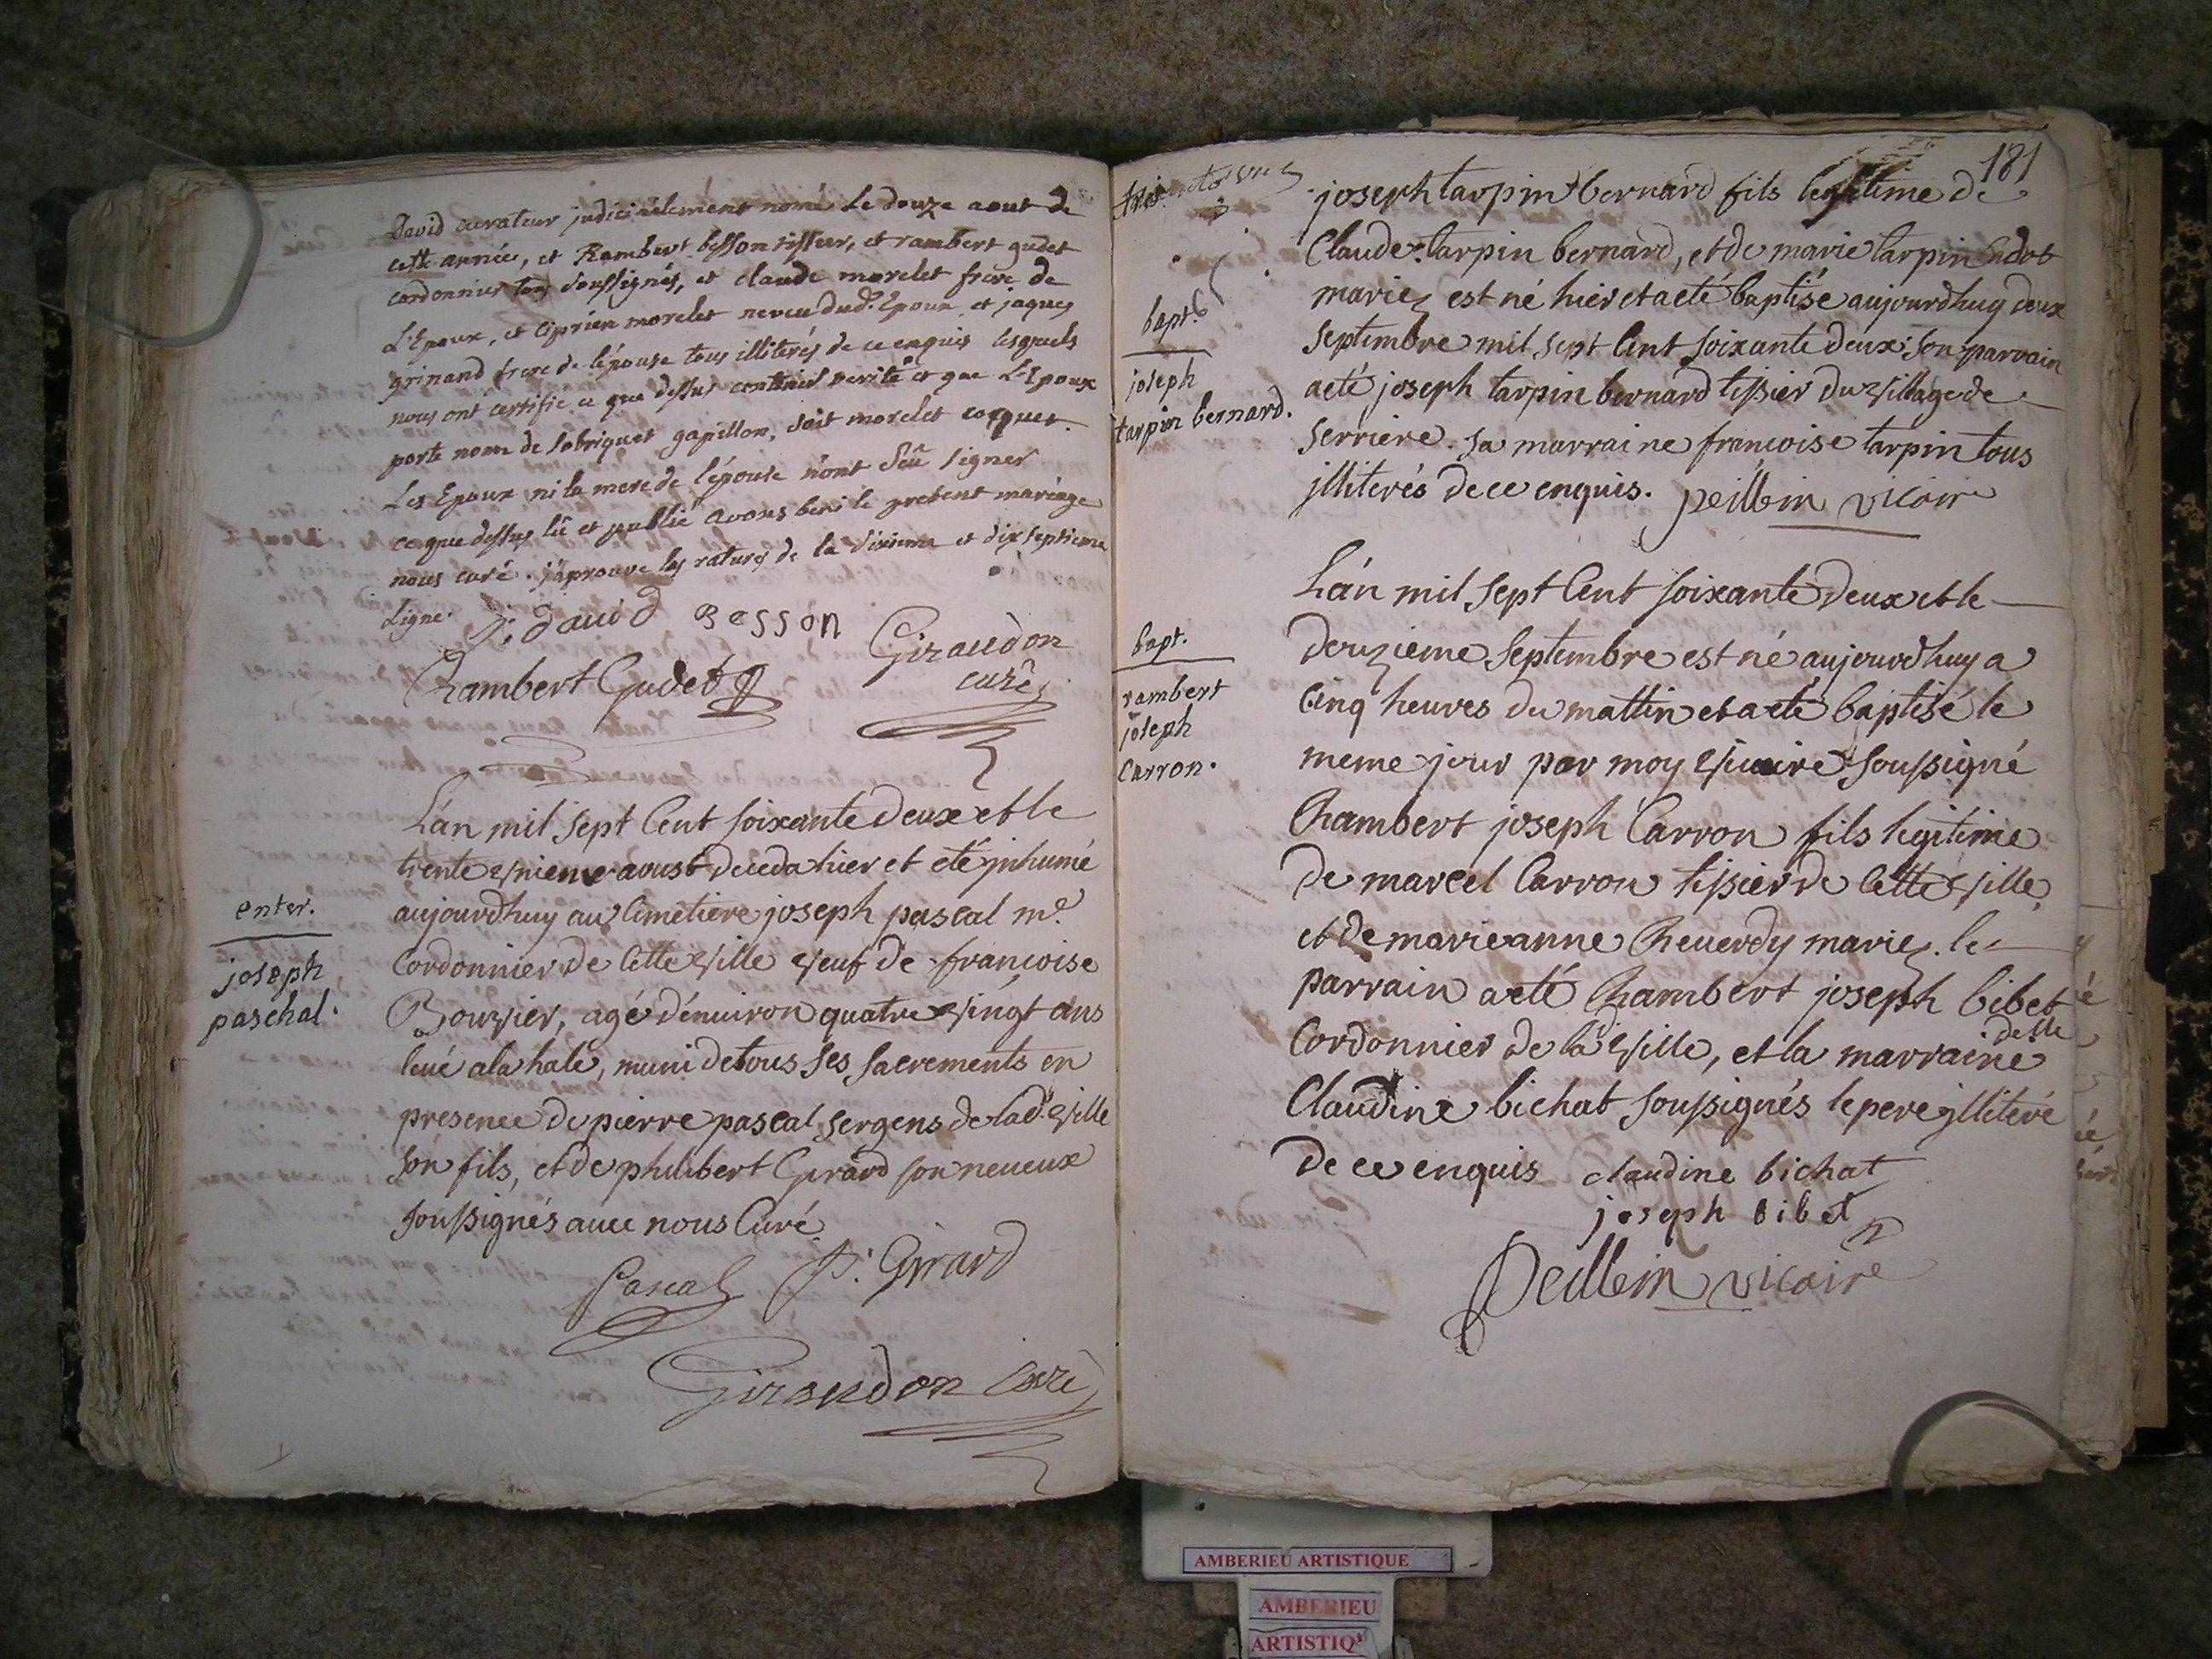 David curateur judiciélement nomé Le douze aout de
cette année, et Rambert besson tisseur, et rambert gudet
cordonnier tous soussignés, et claude morelet frere de
L'Epoux, et ciprien morelet neveu dud. Epoux et jaques
grinand frere de l'épouse tous illiterés de ce enquis lesquels
nous ont certifié ce que dessus contenir verité et que L'Epoux
porte nom de sobriquet gapillon, soit morelet coquet.
Les Epoux ni la mere de l'épouse n'ont sçû signer
ce que dessus lû et publié avons beni le present mariage
nous curé. j'aprouve les ratures de la sixieme et dixseptieme
Ligne.
david Besson Giraudon
Rambert Gudet curé
enter.
joseph
paschal.
L'an mil sept Cent soixante deux et le
trente unieme aoust deceda hier et eté jnhumé
aujourdhuy au Cimetiere joseph pascal me
Cordonnier de Cette ville veuf de francoise
Bouvier, agé d'enuiron quatre vingt ans
leué a la hale, muni de tous ses sacrements en
presence de pierre pascal sergens de lad. ville
son fils, et de philibert Girard son neueux
soussignés auec nous Curé
Pascal P. Girard
Giraudon Curé
181
bapt.
joseph
tarpin bernard.
joseph tarpin bernard fils legitime de
Claude tarpin bernard, et de marie tarpin Cadot
mariez est né hier et a eté baptisé aujourdhuy deux
septembre mil sept Cent soixante deux son parrain
a eté joseph tarpin bernard tissier du village de
serriere. sa marraine francoise tarpin tous
jlliterés de ce enquis. peillem vicaire
bapt.
rambert
joseph
Carron.
L'an mil sept Cent soixante deux et le
deuzieme septembre est né aujourdhuy a
Cinq heures du mattin et a eté baptisé le
meme jour par moy vicaire soussigné
Rambert joseph Carron fils legitime
de marcel Carron tissier de Cette ville
et de marie anne Reuerdy mariez. le
parrain a eté Rambert joseph bibet
Cordonnier de la ville, et la marraine
delle
Claudine bichat soussignés le pere jlliteré
de ce enquis claudine bichat
joseph bibet
Peillem vicaire
AMBERIEU ARTISTIQUE
AMBERIEU
ARTISTIQ